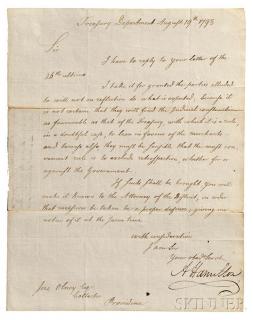 Treasury Department August 19th 1793
Sir
I have to reply to your letter of the
26th ultimo
I take it for granted the parties alluded
to will not on reflection do what is expected, because it is
not certain that they will find the judicial
as favourable as that of the Treasury, with which it is a rule,
in a doubtful case, to lean in favour of the merchants
and because also they must be sensible that the most con
venient rule is to exclude retrospection, whether for or
against the Government.
If suits shall be brought you will
make it known to the Attorney of the District, in order
that measures be taken for a proper defence; giving me
notice of it at the same time.
with consideration
I am Sir
Your obed Servt.
A Hamilton
Jere Olney Esqr
Collector
Providence
SKINNER